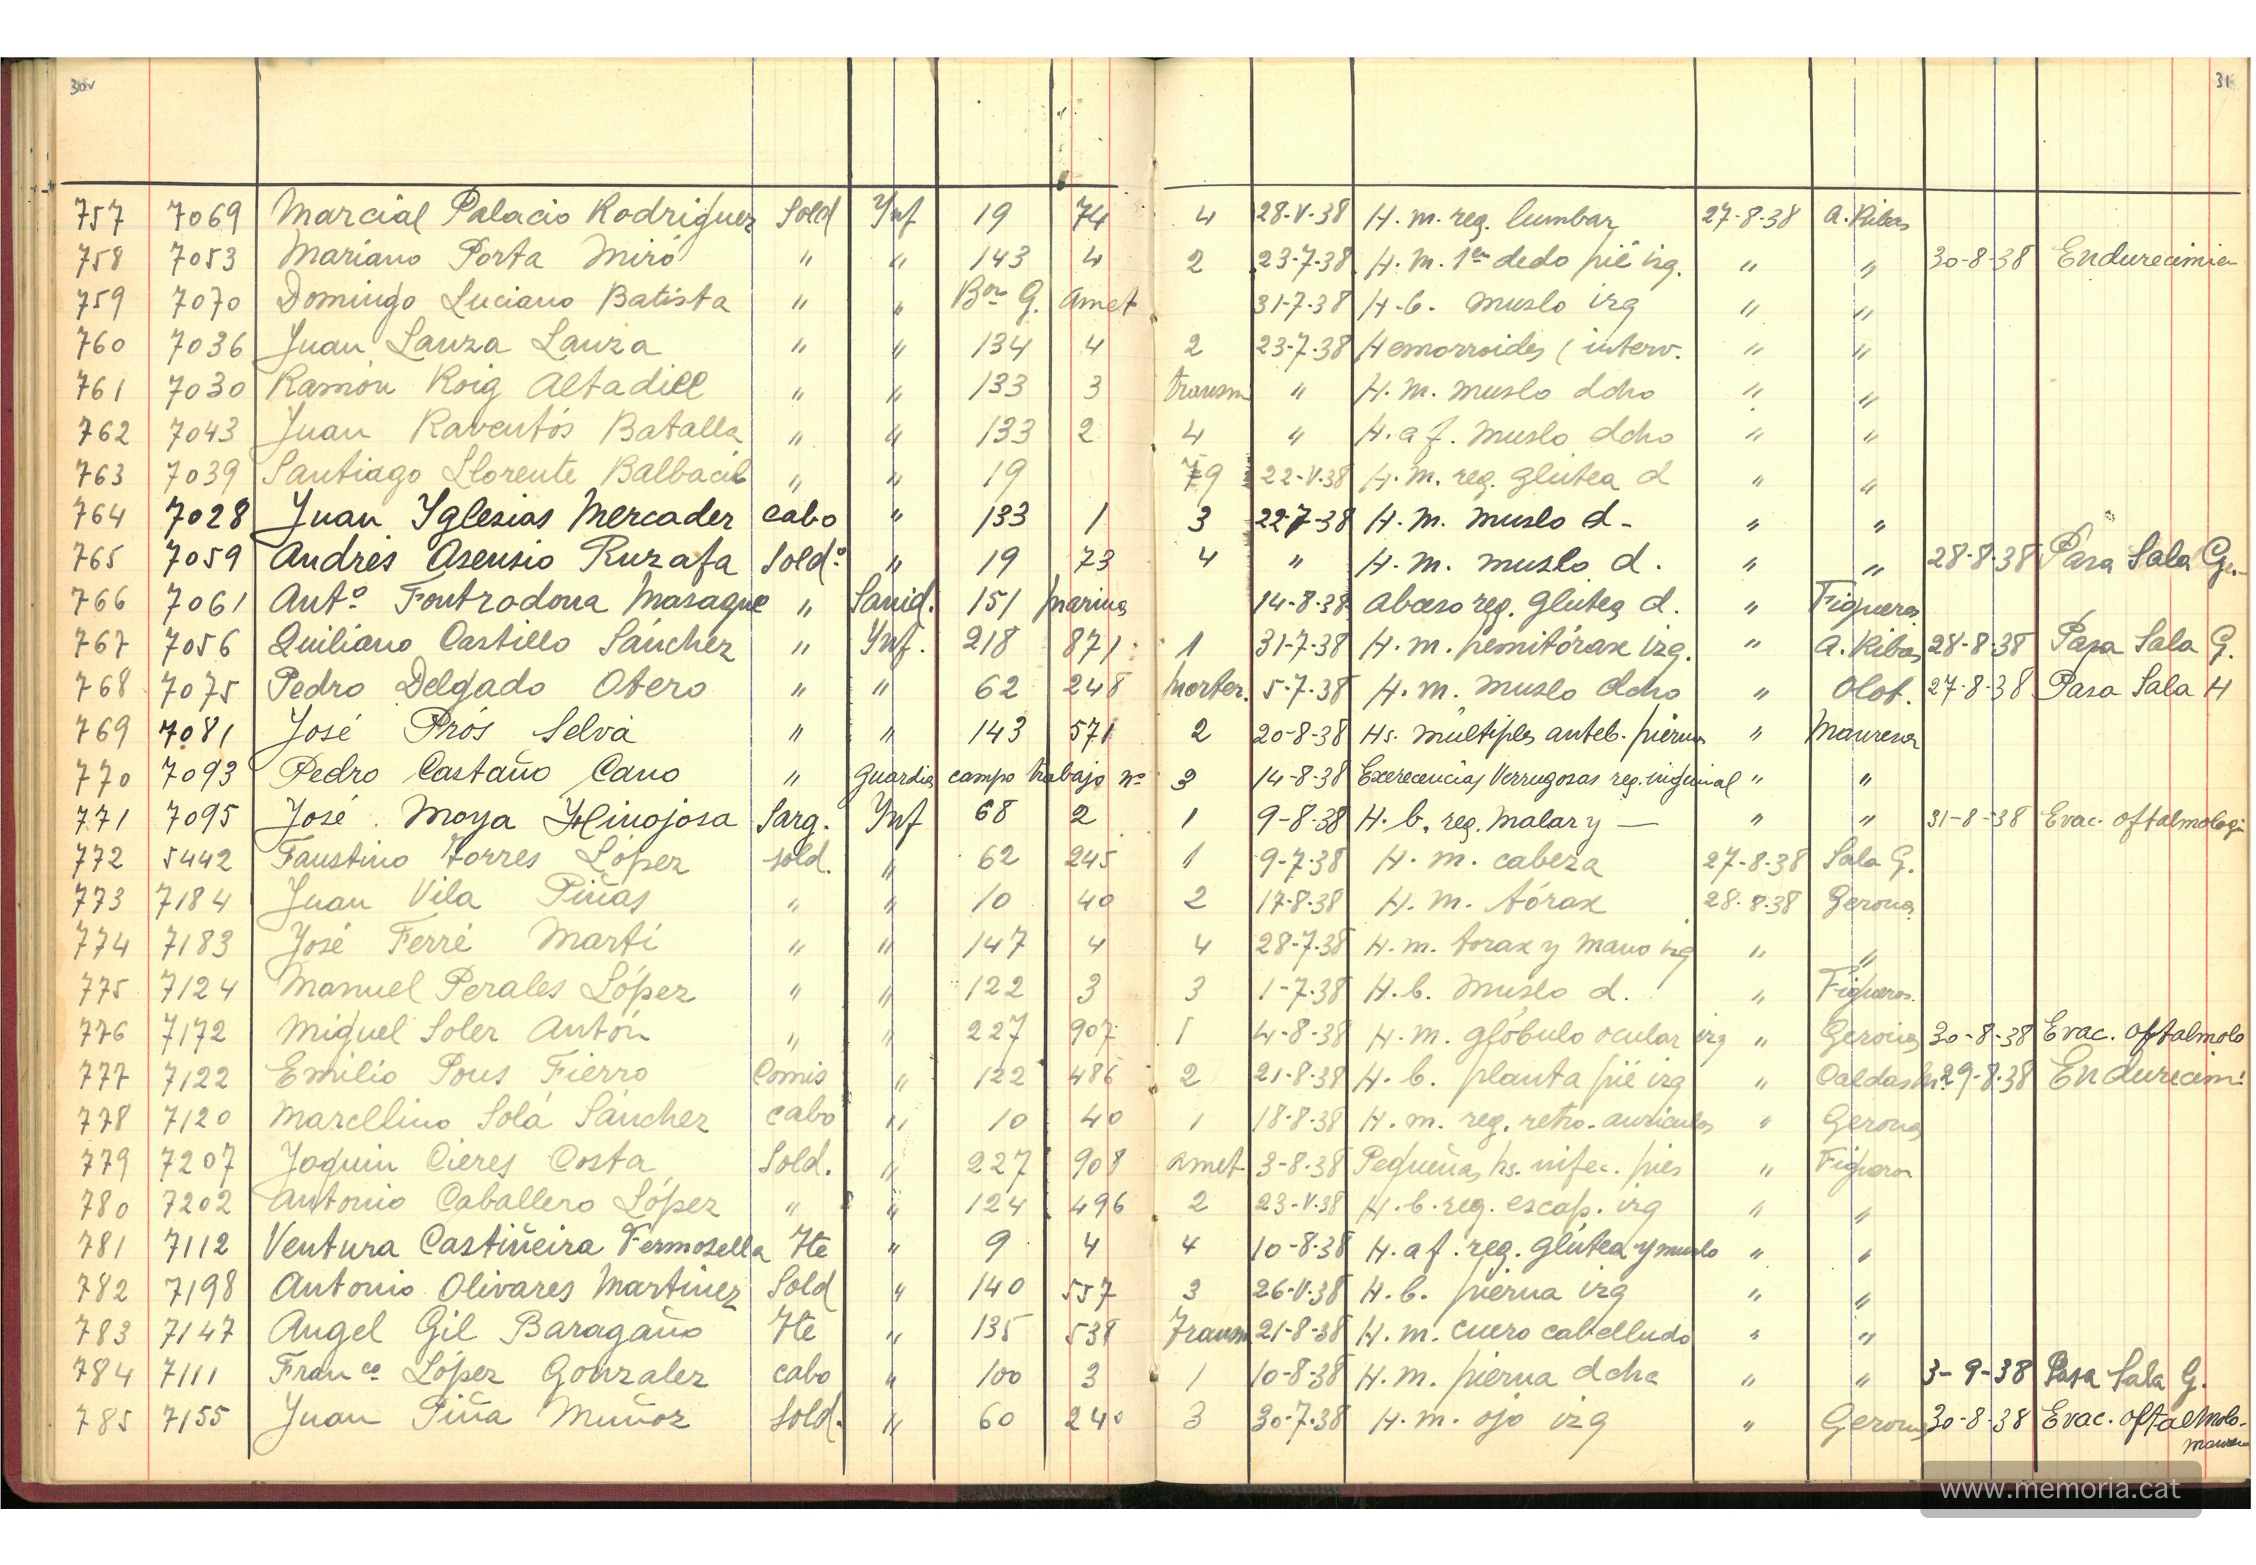 30v 31
757 7069 Marcial Palacio Rodriguez Sold Ynf 19 74 4 28-V-38 H. m. reg. lumbar 27-8-38 A. Ribas
758 7053 Mariano Porta Miró " " 143 4 2 23-7-38 H. m. 1er dedo pié izq. " " 30-8-38 Endurecimien
759 7070 Domingo Luciano Batista " " Bon G. Amet 31-7-38 H. b. muslo izq " "
760 7036 Juan Lanza Lanza " " 134 4 2 23-7-38 Hemorroides (interv. " "
761 7030 Ramón Roig Altadill " " 133 3 transm " H. m. muslo dcho " "
762 7043 Juan Raventós Batalla " " 133 2 4 " H. a f. muslo dcho " "
763 7039 Santiago Llorente Balbacil " " 19 79 22-V-38 H. m. reg. glútea d " "
764 7028 Juan Yglesias Mercader cabo " 133 1 3 22-7-38 H. m. muslo d- " "
765 7059 Andrés Asensio Ruzafa Sold.o " 19 73 4 " H. m. muslo d. " " 28-8-38 Pasa Sala G.
766 7061 Anto Fontrodona Masague " Sanid. 151 marina 14-8-38 Abceso reg. glútea d. " Figueras
767 7056 Quiliano Castillo Sánchez " Ynf. 218 871 1 31-7-38 H. m. hemitórax izq. " A. Ribas 28-8-38 Pasa Sala G.
768 7075 Pedro Delgado Otero " " 62 248 morter. 5-7-38 H. m. muslo dcho " Olot. 27-8-38 Pasa Sala H
769 7081 José Prós Selva " " 143 571 2 20-8-38 Hs. múltiples anteb. pierna " Manresa
770 7093 Pedro Castaño Cano " Guardia campo trabajo nº 3 14-8-38 Excrecencias Verrugosas reg. inguinal " "
771 7095 José Moya Hinojosa Sarg. Ynf 68 2 1 9-8-38 H. b. reg. Malar y — " " 31-8-38 Evac. oftalmologi
772 5442 Faustino Torres López sold. " 62 245 1 9-7-38 H. m. cabeza 27-8-38 Sala G.
773 7184 Juan Vila Piñas " " 10 40 2 17-8-38 H. m. tórax 28-8-38 Gerona
774 7183 José Ferré Martí " " 147 4 4 28-7-38 H. m. torax y mano izq " "
775 7124 Manuel Perales López " " 122 3 3 1-7-38 H. b. muslo d. " Figueras.
776 7172 Miguel Soler Antón " " 227 907 1 4-8-38 H. m. glóbulo ocular izq " Gerona 30-8-38 Evac. oftalmolo
777 7122 Emilio Pous Fierro Comis " 122 486 2 21-8-38 H. b. planta pié izq " Caldas 29-8-38 Endurecim.
778 7120 Marcellino Solá Sánchez cabo " 10 40 1 18-8-38 H. m. reg. retro-auricular " Gerona
779 7207 Joquin Cieres Costa Sold. " 227 908 amet 3-8-38 Pequeñas hs. infec. pies " Figueras
780 7202 Antonio Caballero López " " 124 496 2 23-V-38 H. b. reg. escap. izq " "
781 7112 Ventura Castiñeira Fermosella Tte " 9 4 4 10-8-38 H. a f. reg. glútea y muslo " "
782 7198 Antonio Olivares Martinez Sold " 140 557 3 26-V-38 H. b. pierna izq " "
783 7147 Angel Gil Baragaño Tte " 135 538 Transm 21-8-38 H. m. cuero cabelludo " "
784 7111 Franco López Gonzalez cabo " 100 3 1 10-8-38 H. m. pierna dcha " " 3-9-38 Pasa Sala G.
785 7155 Juan Piña Muñoz Sold. " 60 240 3 30-7-38 H. m. ojo izq " Gerona 30-8-38 Evac. oftalmolo.
www.memoria.cat